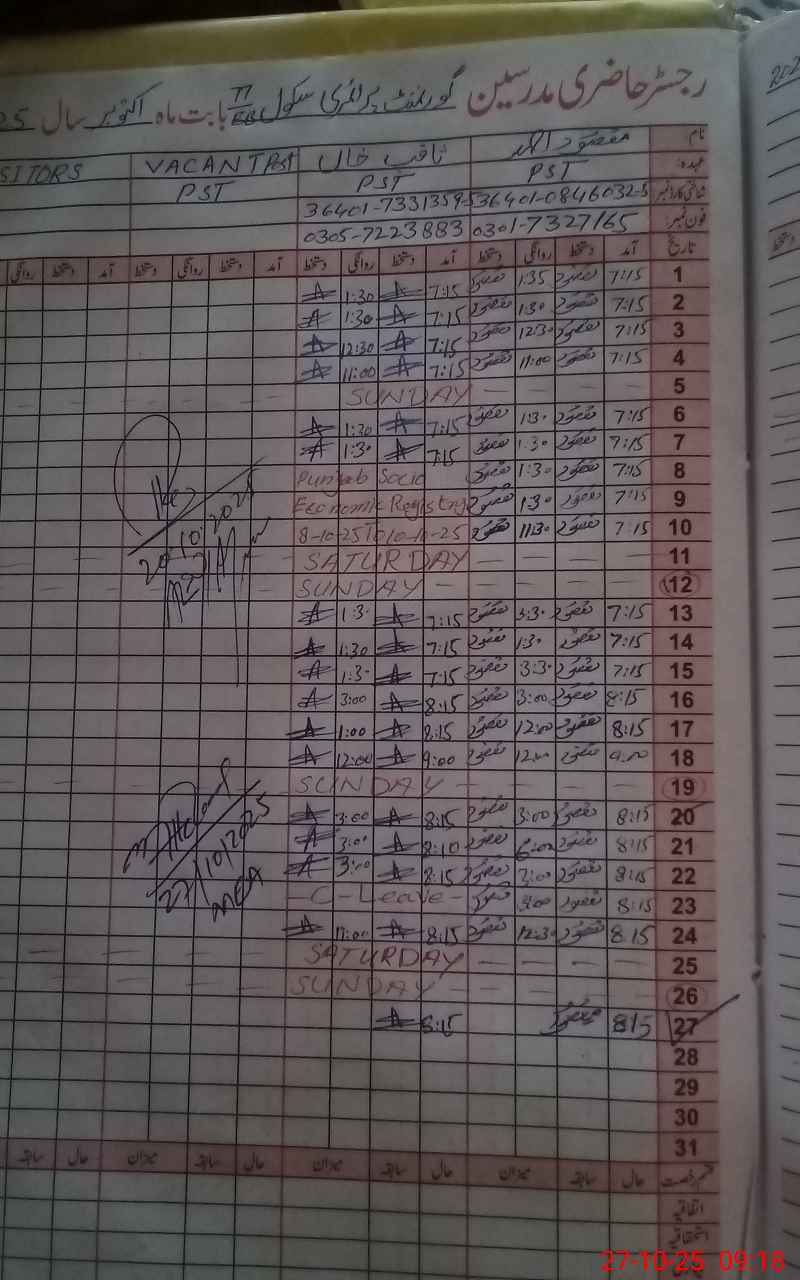 رجسٹر حاضری مدرسین گورنمنٹ پرائمری سکول 77/EB بابت ماہ اکتوبر سال 25
نام مقصود احمد ثاقب خان VACANT Post SITORS
عہدہ PST PST PST
شناختی کارڈ نمبر 36401-0846032-5 36401-7331359-5
فون نمبر 0301-7327165 0305-7223883
تاریخ آمد دستخط روانگی دستخط آمد دستخط روانگی دستخط آمد دستخط روانگی دستخط آمد دستخط روانگی
1 7:15 مقصود 1:35 مقصود 7:15 A 1:30 A
2 7:15 مقصود 1:30 مقصود 7:15 A 1:30 A
3 7:15 مقصود 12:30 مقصود 7:15 A 12:30 A
4 7:15 مقصود 11:00 مقصود 7:15 A 11:00 A
5 SUNDAY
6 7:15 مقصود 1:30 مقصود 7:15 A 1:30 A
7 7:15 مقصود 1:30 مقصود 7:15 A 1:30 A
8 7:15 مقصود 1:30 مقصود Punjab Socio
9 7:15 مقصود 1:30 مقصود Economic Registry
10 7:15 مقصود 11:30 مقصود 8-10-25 To 10-10-25
11 SATURDAY
12 SUNDAY
20.10.2025
13 7:15 مقصود 3:30 مقصود 7:15 A 1:30 A
14 7:15 مقصود 1:30 مقصود 7:15 A 1:30 A
15 7:15 مقصود 3:30 مقصود 7:15 A 1:30 A
16 8:15 مقصود 3:00 مقصود 8:15 A 3:00 A
17 8:15 مقصود 12:00 مقصود 8:15 A 1:00 A
18 9:00 مقصود 12:00 مقصود 9:00 A 12:00 A
19 SUNDAY
20 8:15 مقصود 3:00 مقصود 8:15 A 3:00 A
21 8:15 مقصود 6:00 مقصود 8:10 A 3:00 A
22 8:15 مقصود 3:00 مقصود 8:15 A 3:00 A
27/10/2025
MEA
23 8:15 مقصود مقصود C-Leave
24 8:15 مقصود 12:30 مقصود 8:15 A A
25 SATURDAY
26 SUNDAY
27 8:15 مقصود 8:15 A
28
29
30
31
قسم رخصت حال سابقہ میزان حال سابقہ میزان حال سابقہ میزان حال سابقہ
اتفاقیہ
استحقاقیہ
27-10-25 09:18